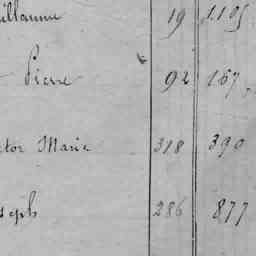 uillaume 19 1.195
Pierre 92 167
ctor Marie 318 390
oseph 286 877